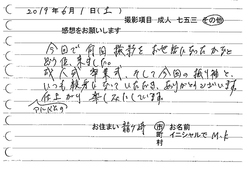 2019年6月1日(土)
撮影項目 成人 七五三 その他
感想をお願いします
今回で何回撮影をお世話になったかなと
思う位、来ました。
成人式、卒業式、そして今回の振り袖と、
いつも親身になっていただき、ありがとうございます。
仕上がり楽しみにしています。
アルバムの
お住まい 龍ケ崎 市 町 村 お名前 イニシャルで M.K